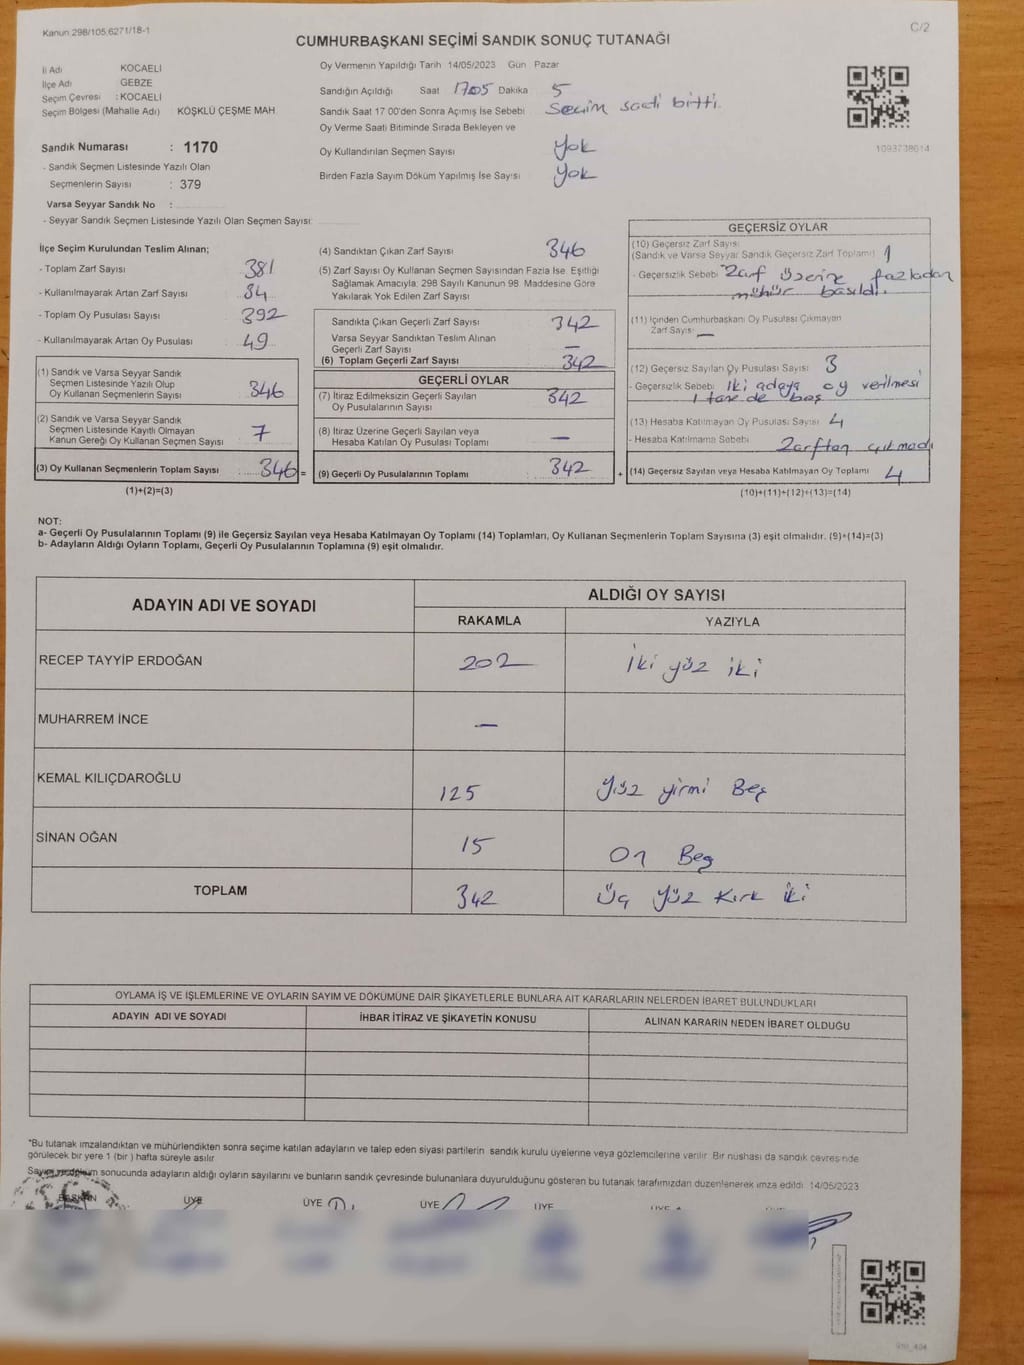 Kanun 298/105;6271/18-1
C/2
CUMHURBAŞKANI SEÇİMİ SANDIK SONUÇ TUTANAĞI
İl Adı KOCAELİ
İlçe Adı GEBZE
Seçim Çevresi : KOCAELİ
Seçim Bölgesi (Mahalle Adı) KÖŞKLÜ ÇEŞME MAH
Sandık Numarası : 1170
- Sandık Seçmen Listesinde Yazılı Olan
Seçmenlerin Sayısı : 379
Varsa Seyyar Sandık No :
- Seyyar Sandık Seçmen Listesinde Yazılı Olan Seçmen Sayısı:
Oy Vermenin Yapıldığı Tarih 14/05/2023 Gün Pazar
Sandığın Açıldığı Saat 17.05 Dakika 5
Sandık Saat 17 00'den Sonra Açımış İse Sebebi Seçim saati bitti.
Oy Verme Saati Bitiminde Sırada Bekleyen ve
Oy Kullandırılan Seçmen Sayısı yok
Birden Fazla Sayım Döküm Yapılmış İse Sayısı yok
1093738014
İlçe Seçim Kurulundan Teslim Alınan;
- Toplam Zarf Sayısı 381
- Kullanılmayarak Artan Zarf Sayısı 34
- Toplam Oy Pusulası Sayısı 392
- Kullanılmayarak Artan Oy Pusulası 49
(1) Sandık ve Varsa Seyyar Sandık
Seçmen Listesinde Yazılı Olup
Oy Kullanan Seçmenlerin Sayısı 346
(2) Sandık ve Varsa Seyyar Sandık
Seçmen Listesinde Kayıtlı Olmayan
Kanun Gereği Oy Kullanan Seçmen Sayısı 7
(3) Oy Kullanan Seçmenlerin Toplam Sayısı 346 =
(1)+(2)=(3)
(4) Sandıktan Çıkan Zarf Sayısı 346
(5) Zarf Sayısı Oy Kullanan Seçmen Sayısından Fazla İse Eşitliği
Sağlamak Amacıyla; 298 Sayılı Kanunun 98 Maddesine Göre
Yakılarak Yok Edilen Zarf Sayısı
Sandıkta Çıkan Geçerli Zarf Sayısı 342
Varsa Seyyar Sandıktan Teslim Alınan
Geçerli Zarf Sayısı —
(6) Toplam Geçerli Zarf Sayısı 342
GEÇERLİ OYLAR
(7) İtiraz Edilmeksizin Geçerli Sayılan
Oy Pusulalarının Sayısı 342
(8) İtiraz Üzerine Geçerli Sayılan veya
Hesaba Katılan Oy Pusulası Toplamı —
(9) Geçerli Oy Pusulalarının Toplamı 342 +
GEÇERSİZ OYLAR
(10) Geçersiz Zarf Sayısı
(Sandık ve Varsa Seyyar Sandık Geçersiz Zarf Toplamı) 1
- Geçersizlik Sebebi Zarf üzerine fazladan
mühür basıldı.
(11) İçinden Cumhurbaşkanı Oy Pusulası Çıkmayan
Zarf Sayısı —
(12) Geçersiz Sayılan Oy Pusulası Sayısı 3
- Geçersizlik Sebebi İki adaya oy verilmesi
1 tane de boş
(13) Hesaba Katılmayan Oy Pusulası Sayısı 4
- Hesaba Katılmama Sebebi Zarftan çıkmadı
(14) Geçersiz Sayılan veya Hesaba Katılmayan Oy Toplamı 4
(10)+(11)+(12)+(13)=(14)
NOT:
a- Geçerli Oy Pusulalarının Toplamı (9) ile Geçersiz Sayılan veya Hesaba Katılmayan Oy Toplamı (14) Toplamları, Oy Kullanan Seçmenlerin Toplam Sayısına (3) eşit olmalıdır. (9)+(14)=(3)
b- Adayların Aldığı Oyların Toplamı, Geçerli Oy Pusulalarının Toplamına (9) eşit olmalıdır.
ADAYIN ADI VE SOYADI ALDIĞI OY SAYISI
RAKAMLA YAZIYLA
RECEP TAYYİP ERDOĞAN 202 İki yüz iki
MUHARREM İNCE —
KEMAL KILIÇDAROĞLU 125 Yüz yirmi Beş
SİNAN OĞAN 15 On Beş
TOPLAM 342 Üç yüz Kırk iki
OYLAMA İŞ VE İŞLEMLERİNE VE OYLARIN SAYIM VE DÖKÜMÜNE DAİR ŞİKAYETLERLE BUNLARA AİT KARARLARIN NELERDEN İBARET BULUNDUKLARI
ADAYIN ADI VE SOYADI İHBAR İTİRAZ VE ŞİKAYETİN KONUSU ALINAN KARARIN NEDEN İBARET OLDUĞU
*Bu tutanak imzalandıktan ve mühürlendikten sonra seçime katılan adayların ve talep eden siyasi partilerin sandık kurulu üyelerine veya gözlemcilerine verilir. Bir nüshası da sandık çevresinde
görülecek bir yere 1 (bir) hafta süreyle asılır
Sayım ve döküm sonucunda adayların aldığı oyların sayılarını ve bunların sandık çevresinde bulunanlara duyurulduğunu gösteren bu tutanak tarafımızdan düzenlenerek imza edildi. 14/05/2023
BAŞKAN ÜYE ÜYE ÜYE ÜYE